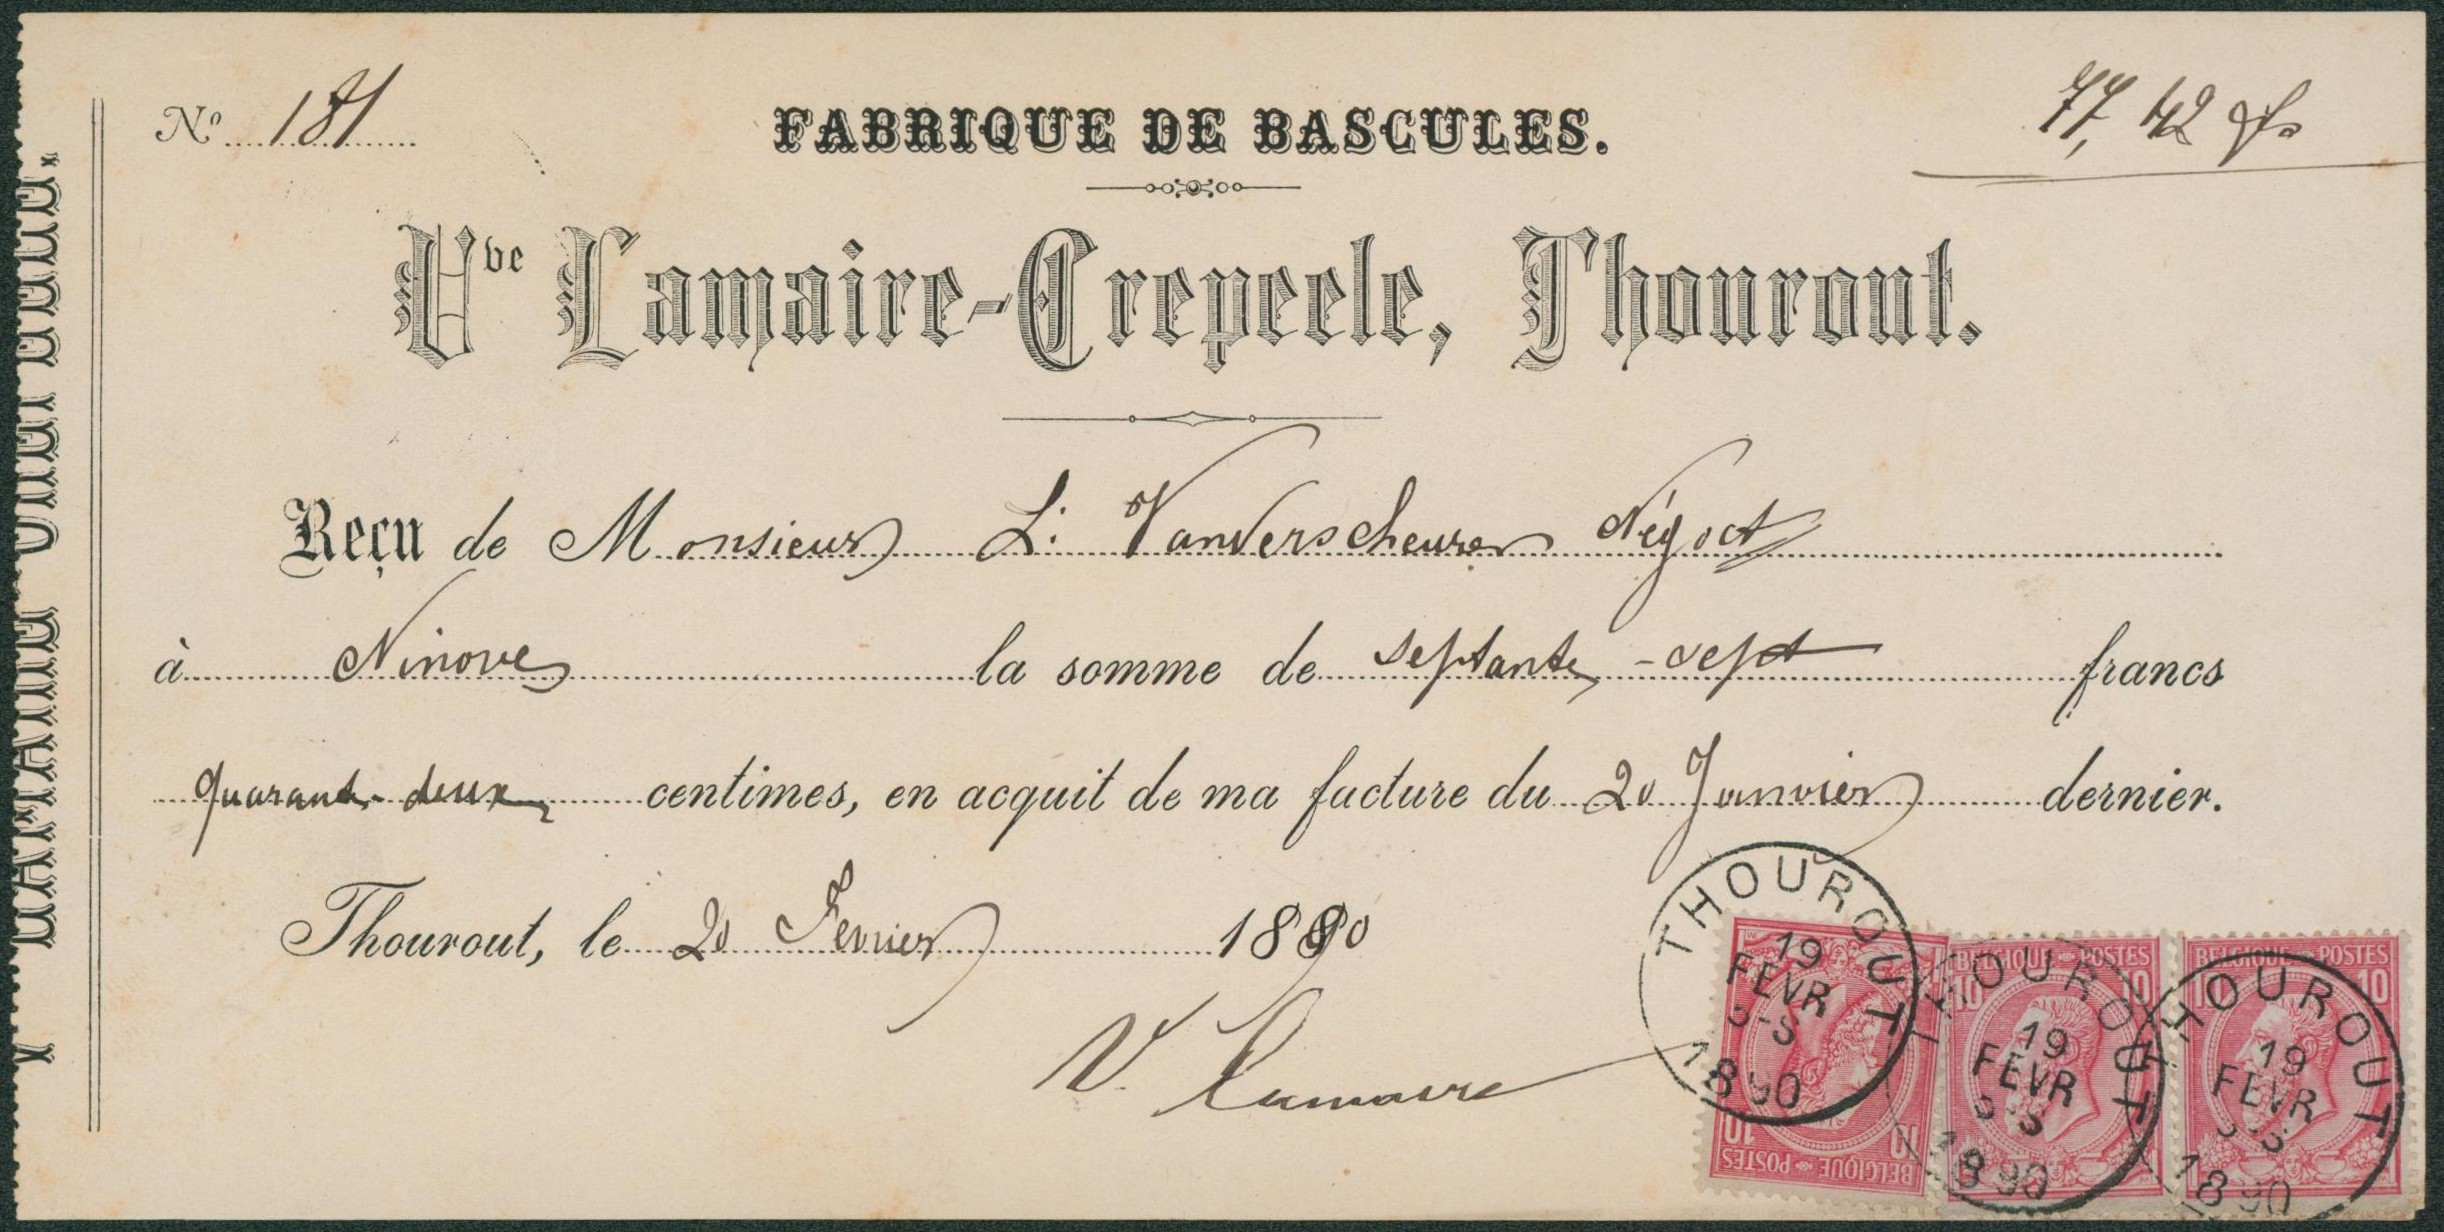 Nº 181
77,42 fs
FABRIQUE DE BASCULES.
Vve Lamaire-Crepeele, Thourout.
Reçu de Monsieur L. Vanverscheuren Négoct
à Ninove la somme de septante-sept francs
quarante-deux centimes, en acquit de ma facture du 20 Janvier dernier.
Thourout, le 20 Fevrier 1890
V. Lamaire
THOUROUT
19
FEVR
1890
BELGIQUE POSTES
10 10
THOUROUT
19
FEVR
1890
BELGIQUE POSTES
10 10
THOUROUT
19
FEVR
1890
BELGIQUE POSTES
10 10